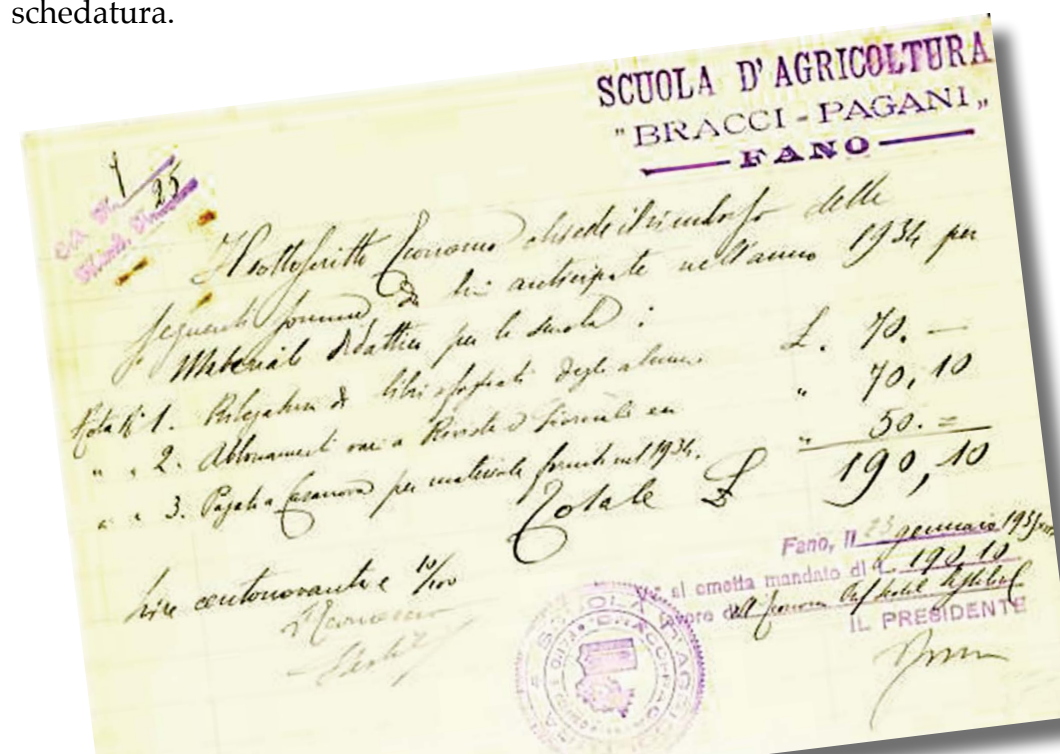 schedatura.
SCUOLA D'AGRICOLTURA
"BRACCI - PAGANI"
FANO
1
25
Il sottoscritto Economo chiede il rimborso delle
seguenti somme da lui anticipate nell'anno 1934 per
Materiale didattico per la scuola :
Nota N. 1. Rilegatura di libri degli alunni £. 70. —
" " 2. Abbonamenti vari a Riviste e Giornali " 70,10
" " 3. Pagati a Casanova per materiale forniti nel 1934. " 50. =
Totale £ 190,10
Lire centonovanta e 10/100
L'Economo
Fano, li 23 gennaio
si emetta mandato di L. 190.10
favore dell'Economo
IL PRESIDENTE